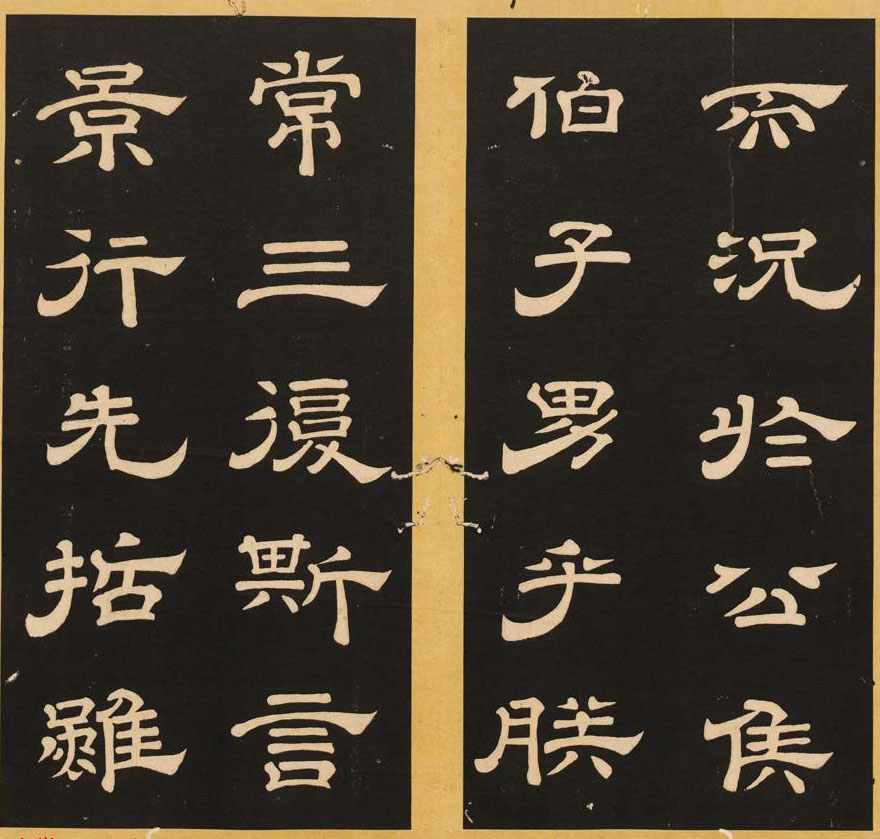 而況於公侯
伯子男乎朕
常三復斯言
景行先哲雖